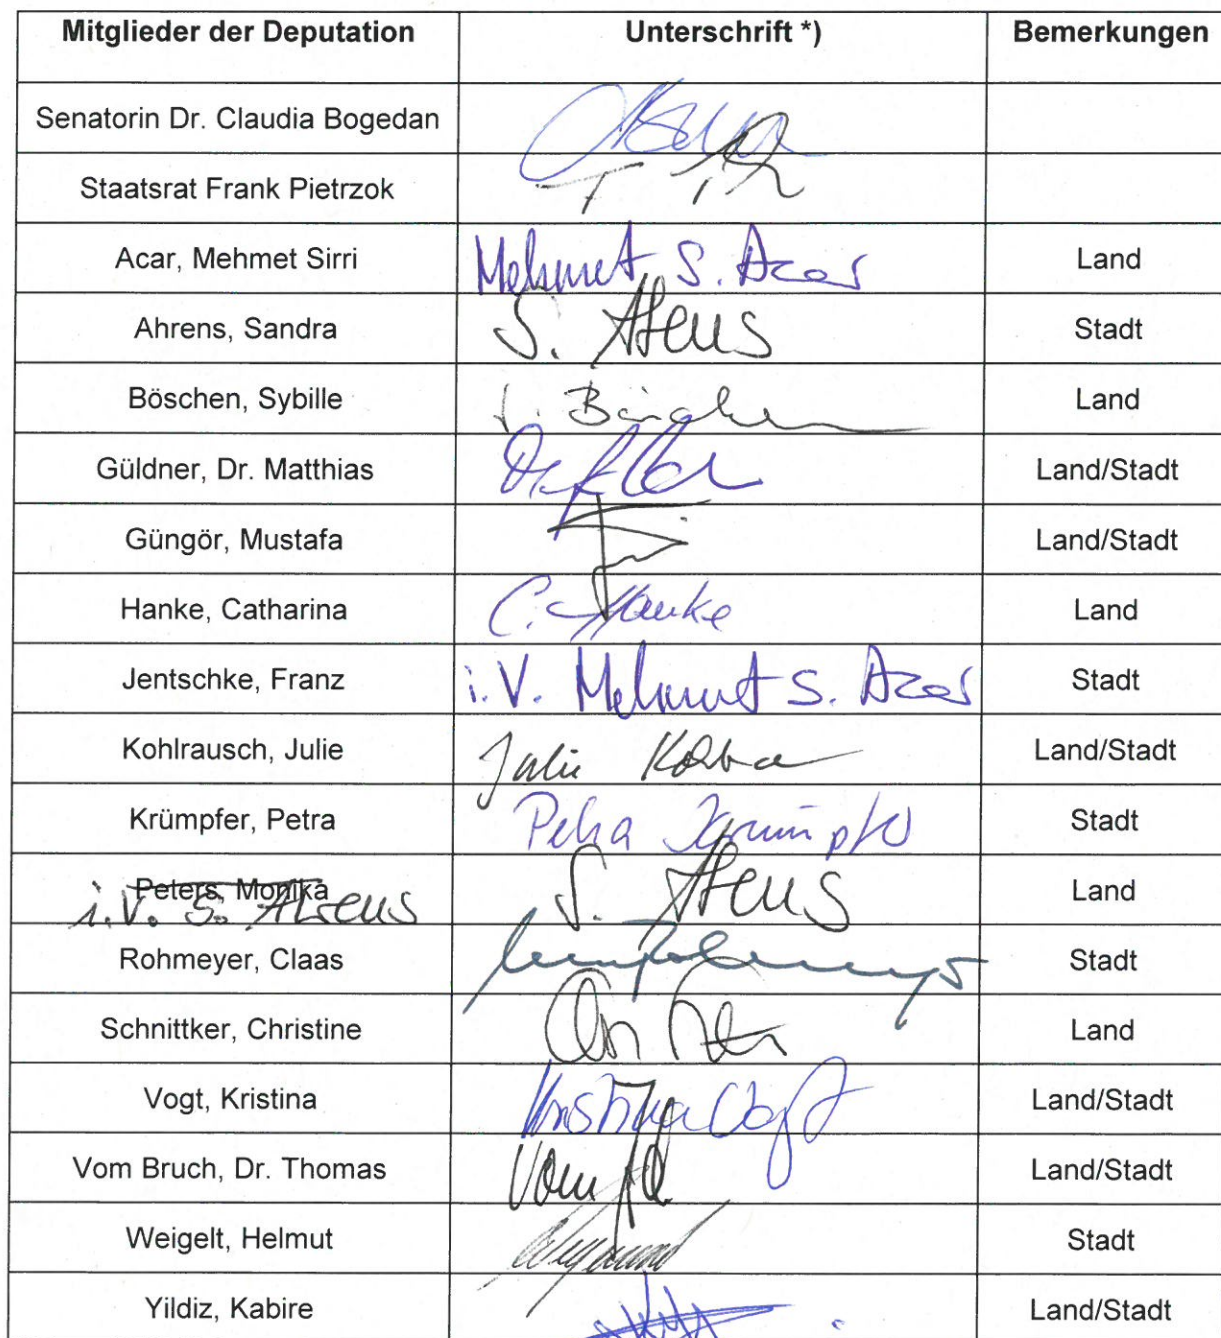 Mitglieder der Deputation Unterschrift *) Bemerkungen
Senatorin Dr. Claudia Bogedan
Staatsrat Frank Pietrzok
Acar, Mehmet Sirri Mehmet S. Acar Land
Ahrens, Sandra S. Ahrens Stadt
Böschen, Sybille Land
Güldner, Dr. Matthias Land/Stadt
Güngör, Mustafa Land/Stadt
Hanke, Catharina C. Hanke Land
Jentschke, Franz i.V. Mehmet S. Acar Stadt
Kohlrausch, Julie Julie Land/Stadt
Krümpfer, Petra Petra Krümpfer Stadt
Peters, Monika S. Ahrens Land
i.V. S. Ahrens
Rohmeyer, Claas Stadt
Schnittker, Christine Land
Vogt, Kristina Kristina Vogt Land/Stadt
Vom Bruch, Dr. Thomas Land/Stadt
Weigelt, Helmut Stadt
Yildiz, Kabire Land/Stadt